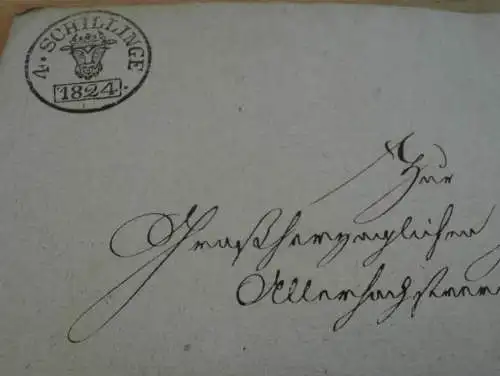 4. SCHILLINGE
1824.
Zur
Großherzoglichen
Allerhöchstver